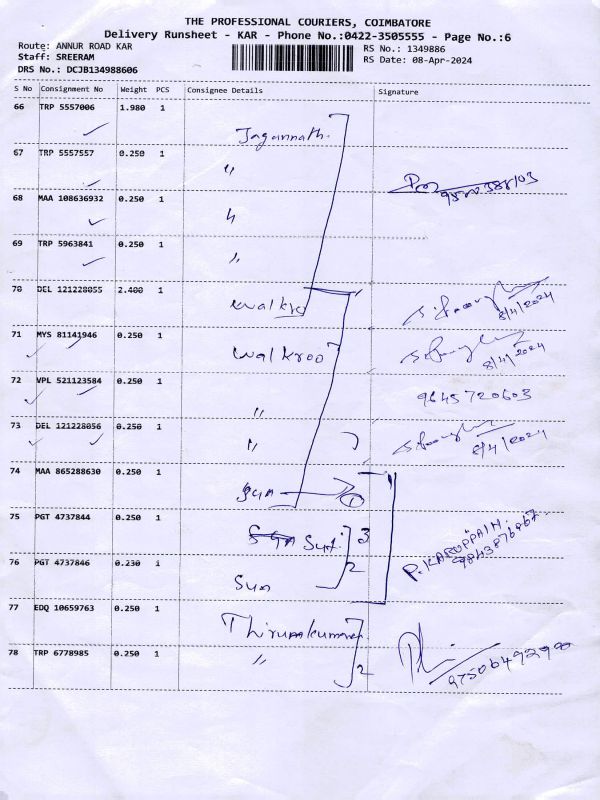 THE PROFESSIONAL COURIERS, COIMBATORE
Delivery Runsheet - KAR - Phone No.:0422-3505555 - Page No.:6
Route: ANNUR ROAD KAR RS No.: 1349886
Staff: SREERAM RS Date: 08-Apr-2024
DRS No.: DCJB134988606
S No Consignment No Weight PCS Consignee Details Signature
66 TRP 5557006 1.980 1 Jagannath.
67 TRP 5557557 0.250 1 "
68 MAA 108636932 0.250 1 "
69 TRP 5963841 0.250 1 "
70 DEL 121228055 2.400 1 Walkro 8/4/2024
71 MYS 81141946 0.250 1 Walkroo 8/4/2024
72 VPL 521123584 0.250 1 " 9645720603
73 DEL 121228056 0.250 1 " 8/4/2024
74 MAA 865288630 0.250 1 Sun 1
75 PGT 4737844 0.250 1 3
76 PGT 4737846 0.230 1 Sun 2
77 EDQ 10659763 0.250 1 Thirumkumaran
78 TRP 6778985 0.250 1 " 2